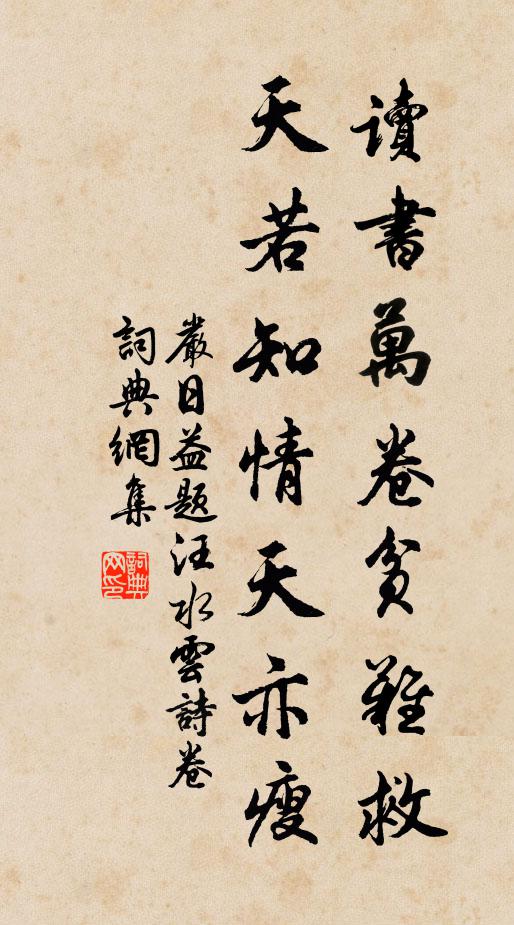 讀書萬卷貧難救
天若知情天亦瘦
嚴日益題汪水雲詩卷
詞典網集
詞典
网印